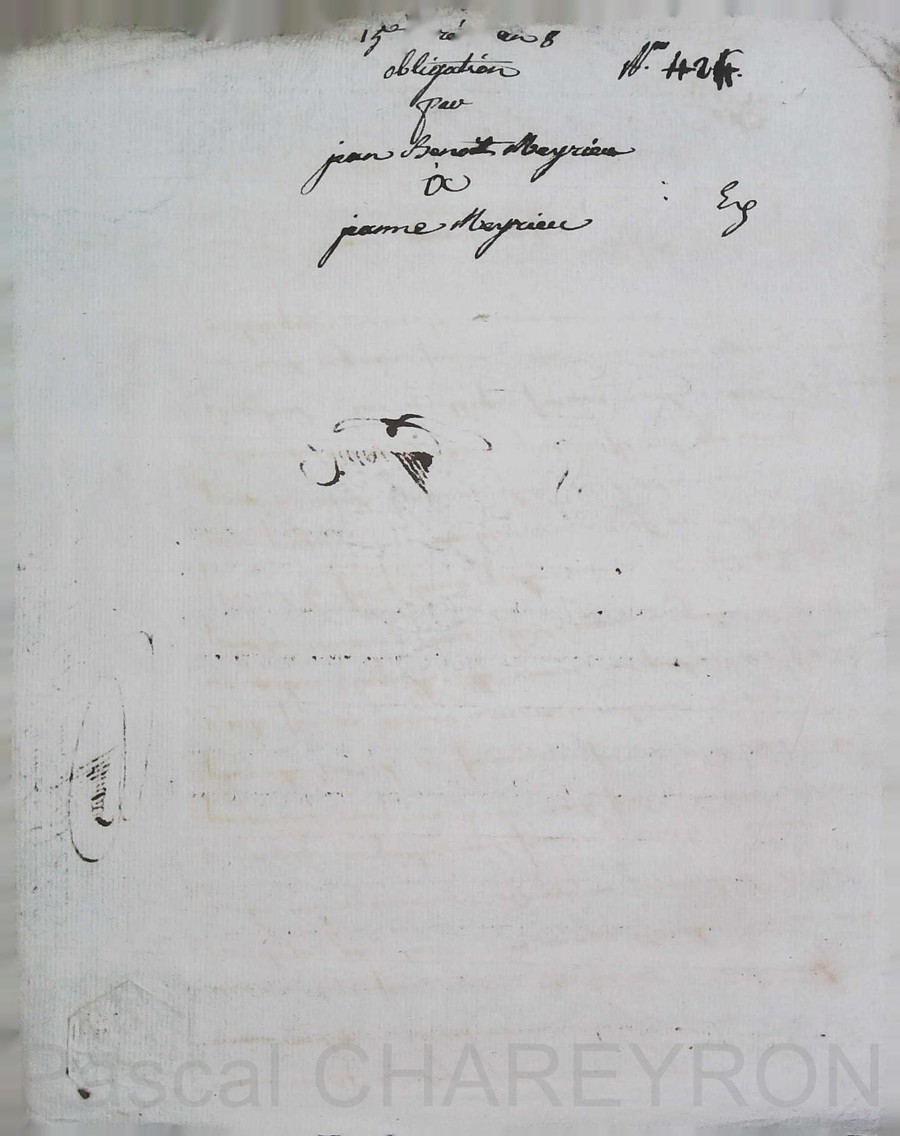 15e an 8
obligation
N° 424.
par
jean Benoit Meyrieu
à
jeanne Meyrieu
Exp
Pascal CHAREYRON